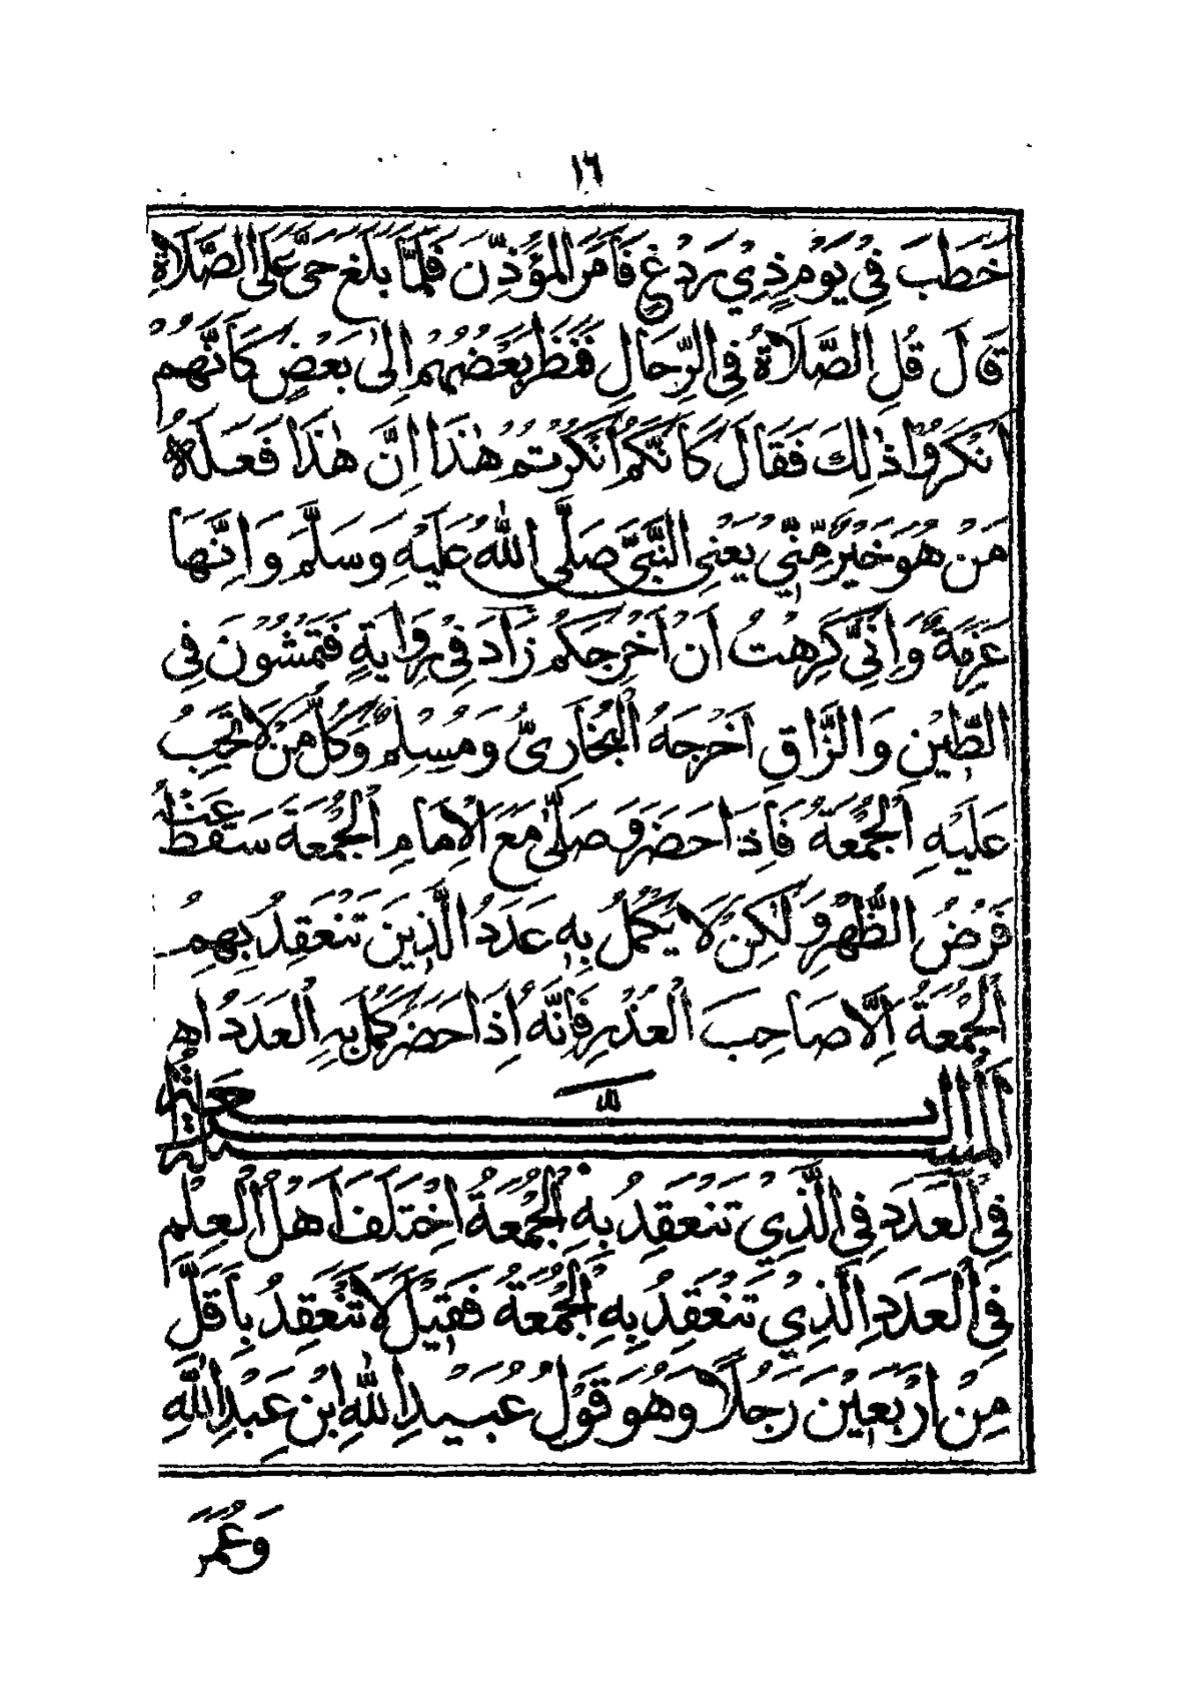 ١٦
خَطَبَ فِيْ يَوْمٍ ذِيْ رَدْغٍ فَأَمَرَ الْمُؤَذِّنَ فَلَمَّا بَلَغَ حَىَّ عَلَى الصَّلَاةِ
قَالَ قُلِ الصَّلَاةُ فِي الرِّحَالِ فَنَظَرَ بَعْضُهُمْ اِلٰى بَعْضٍ كَاَنَّهُمْ
اَنْكَرُوْا ذٰلِكَ فَقَالَ كَاَنَّكُمْ اَنْكَرْتُمْ هٰذَا اِنَّ هٰذَا فَعَلَهُ
مَنْ هُوَ خَيْرٌ مِّنِّيْ يَعْنِي النَّبِيَّ صَلَّى اللهُ عَلَيْهِ وَسَلَّمَ وَاِنَّهَا
عَزِمَةٌ وَاِنِّيْ كَرِهْتُ اَنْ اُخْرِجَكُمْ زَادَ فِيْ رِوَايَةٍ فَتَمْشُوْنَ فِي
الطِّيْنِ وَالزَّاقِ اَخْرَجَهُ الْبُخَارِيُّ وَمُسْلِمٌ وَكُلُّ مَنْ لَا تَجِبُ
عَلَيْهِ الْجُمُعَةُ فَاِذَا حَضَرَ وَصَلّٰى مَعَ الْاِمَامِ الْجُمُعَةَ سَقَطَ عَنْهُ
فَرْضُ الظُّهْرِ وَلٰكِنْ لَا يَكْمُلُ بِهِ عَدَدُ الَّذِيْنَ تَنْعَقِدُ بِهِمُ
الْجُمُعَةُ اِلَّا صَاحِبَ الْعُذْرِ فَاِنَّهُ اِذَا حَضَرَ كَمُلَ بِهِ الْعَدَدُ اهـ
فِي الْعَدَدِ فِي الَّذِيْ تَنْعَقِدُ بِهِ الْجُمُعَةُ اِخْتَلَفَ اَهْلُ الْعِلْمِ
فِي الْعَدَدِ الَّذِيْ تَنْعَقِدُ بِهِ الْجُمُعَةُ فَقِيْلَ لَا تَنْعَقِدُ بِاَقَلَّ
مِنْ اَرْبَعِيْنَ رَجُلًا وَهُوَ قَوْلُ عُبَيْدِ اللهِ ابْنِ عَبْدِ اللهِ
وَعُمَرَ